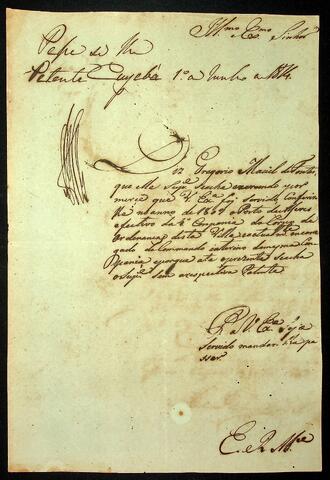 Illmo e Exmo Senhor
Passe-se lhe
Patente Cuyabá 1º de Junho de 1814.
Diz Gregorio Maciel de Fontes,
que elle Supe. se acha exercendo por
merce que V. Exa. foi servido conferir
lhe no anno de 1809 o Posto de Alferes
efectivo da 4ª Companhia do Corpo de
Ordenanças desta Villa, e actualmte. encarre
gado do Commando interino da mesma Com
panhia, e porque athe o prezente se acha
o Supe. sem a respectiva Patente
P. a V. Exa. seja
servido mandar lha pa
ssar.
E. R. Mce